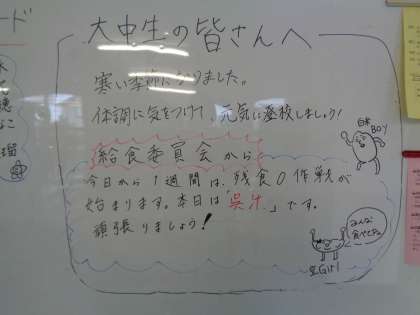 ード
大中生の皆さんへ
寒い季節になりました。
体調に気をつけて、元気に登校しましょう!
給食委員会から
今日から1週間は、残食0作戦が
始まります。本日は「呉汁」です。
頑張りましょう!
白米BOY
みんな食べてネ。
豆Girl